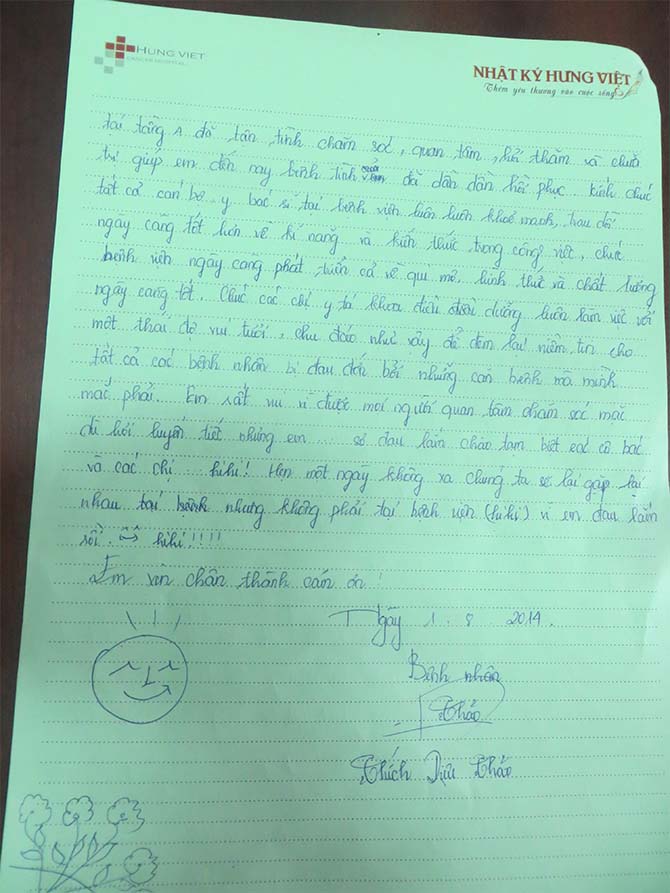 HUNG VIET
CANCER HOSPITAL
NHẬT KÝ HƯNG VIỆT
Thêm yêu thương vào cuộc sống
tại tầng A đã tận tình chăm sóc, quan tâm, hỏi thăm và chữa
trị giúp em đến nay bệnh tình đã dần dần hồi phục. kính chúc
tất cả cán bộ y bác sĩ tại bệnh viện luôn luôn khoẻ mạnh, trau dồi
ngày càng tốt hơn về kĩ năng và kiến thức trong công việc, chúc
bệnh viện ngày càng phát triển cả về qui mô, hình thức và chất lượng
ngày càng tốt. Chúc các chị y tá khoa điều dưỡng luôn làm việc với
một thái độ vui tươi, chu đáo như vậy để đem lại niềm tin cho
tất cả các bệnh nhân bị đau đớn bởi những căn bệnh mà mình
mắc phải. Em rất vui vì được mọi người quan tâm chăm sóc mặc
dù hơi luyến tiếc nhưng em ..... sẽ đau lắm chào tạm biệt các cô bác
và các chị ... hihi! Hẹn một ngày không xa chúng ta sẽ lại gặp lại
nhau tại bệnh nhưng không phải tại bệnh viện (hihi) vì em đau lắm
rồi. hihi!!!!
Em xin chân thành cảm ơn!
Ngày 1. 8 2014.
Bệnh nhân
Thảo
Thích Diệu Thảo